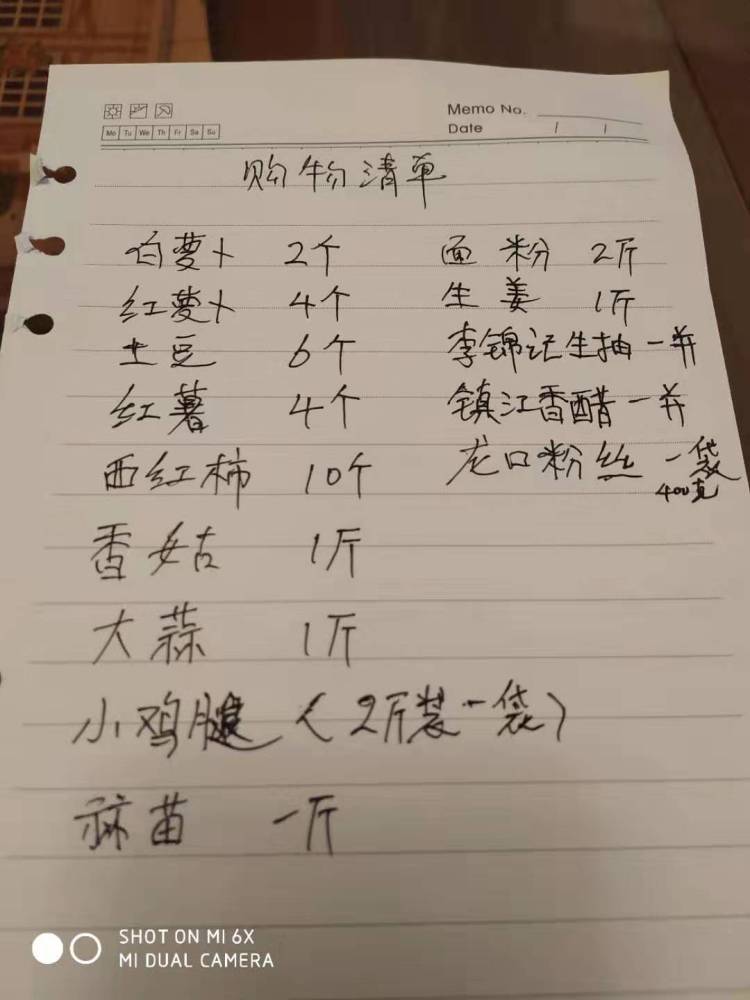 Memo No.
Mo Tu We Th Fr Sa Su
Date / /
购物清单
白萝卜 2个
红萝卜 4个
土豆 6个
红薯 4个
西红柿 10个
香姑 1斤
大蒜 1斤
小鸡腿(2斤装一袋)
蒜苗 一斤
面粉 2斤
生姜 1斤
李锦记生抽一并
镇江香醋一并
龙口粉丝一袋
400克
SHOT ON MI 6X
MI DUAL CAMERA